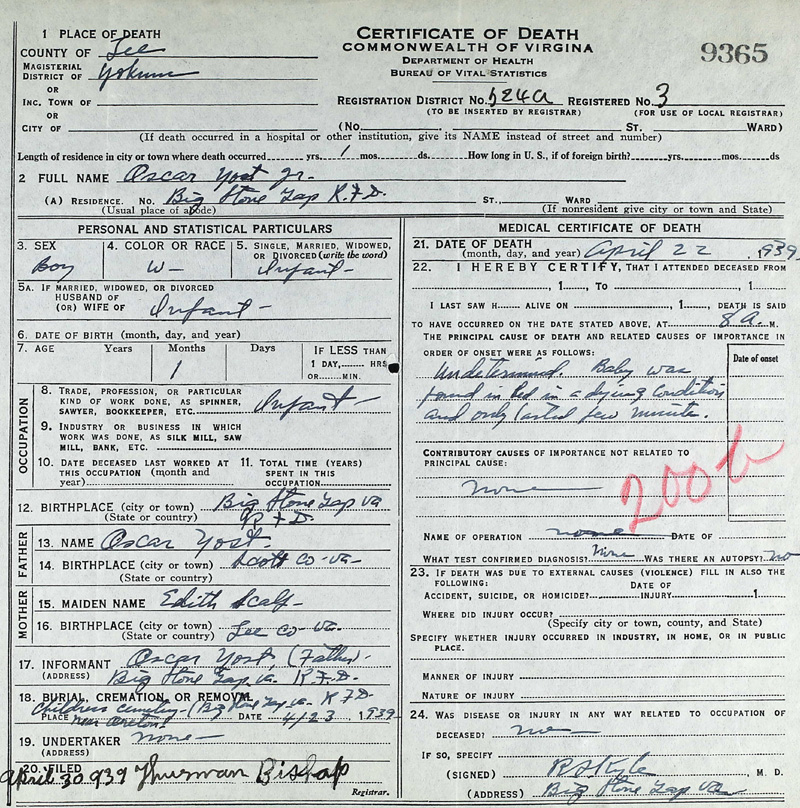 CERTIFICATE OF DEATH
COMMONWEALTH OF VIRGINIA
DEPARTMENT OF HEALTH
BUREAU OF VITAL STATISTICS
9365
1 PLACE OF DEATH
COUNTY OF Lee
MAGISTERIAL
DISTRICT OF Yokum
OR
INC. TOWN OF
OR
CITY OF
REGISTRATION DISTRICT NO. 524a REGISTERED NO. 3
(TO BE INSERTED BY REGISTRAR) (FOR USE OF LOCAL REGISTRAR)
(No. ST. WARD)
(If death occurred in a hospital or other institution, give its NAME instead of street and number)
Length of residence in city or town where death occurred yrs. 1 mos. ds. How long in U. S., if of foreign birth? yrs. mos. ds
2 FULL NAME Oscar Yost Jr.
(A) RESIDENCE. No. Big Stone Gap R.F.D. ST., WARD
(Usual place of abode) (If nonresident give city or town and State)
PERSONAL AND STATISTICAL PARTICULARS
3. SEX
Boy
4. COLOR OR RACE
W-
5. SINGLE, MARRIED, WIDOWED, OR DIVORCED (write the word)
Infant-
5A. IF MARRIED, WIDOWED, OR DIVORCED
HUSBAND OF
(OR) WIFE OF Infant-
6. DATE OF BIRTH (month, day, and year)
7. AGE Years Months Days IF LESS THAN
1 1 DAY, HRS
OR MIN.
OCCUPATION
8. TRADE, PROFESSION, OR PARTICULAR
KIND OF WORK DONE, AS SPINNER,
SAWYER, BOOKKEEPER, ETC. Infant
9. INDUSTRY OR BUSINESS IN WHICH
WORK WAS DONE, AS SILK MILL, SAW
MILL, BANK, ETC.
10. DATE DECEASED LAST WORKED AT
THIS OCCUPATION (month and
year)
11. TOTAL TIME (YEARS)
SPENT IN THIS
OCCUPATION
12. BIRTHPLACE (city or town) Big Stone Gap Va
(State or country) RFD
FATHER
13. NAME Oscar Yost
14. BIRTHPLACE (city or town) Scott Co-Va-
(State or country)
MOTHER
15. MAIDEN NAME Edith Scalf-
16. BIRTHPLACE (city or town) Lee Co-Va-
(State or country)
17. INFORMANT Oscar Yost, (Father-
(ADDRESS) Big Stone Gap Va. R.F.D.
18. BURIAL, CREMATION, OR REMOVAL
Childress cemetery-(Big Stone Gap Va. RFD
PLACE near DATE 4/23, 1939
19. UNDERTAKER none-
(ADDRESS)
20. FILED
April 30 939 Thurman Bishop
Registrar.
MEDICAL CERTIFICATE OF DEATH
21. DATE OF DEATH
(month, day, and year) April 22, 1939
22. I HEREBY CERTIFY, THAT I ATTENDED DECEASED FROM
, 1 , TO , 1
I LAST SAW H ALIVE ON , 1 , DEATH IS SAID
TO HAVE OCCURRED ON THE DATE STATED ABOVE, AT 8 A. M.
THE PRINCIPAL CAUSE OF DEATH AND RELATED CAUSES OF IMPORTANCE IN
ORDER OF ONSET WERE AS FOLLOWS: Date of onset
Undetermined. Baby was
found in Bed in a dying Condition
and only lasted few minute.
CONTRIBUTORY CAUSES OF IMPORTANCE NOT RELATED TO
PRINCIPAL CAUSE:
none
200b
NAME OF OPERATION none DATE OF
WHAT TEST CONFIRMED DIAGNOSIS? None WAS THERE AN AUTOPSY? no
23. IF DEATH WAS DUE TO EXTERNAL CAUSES (VIOLENCE) FILL IN ALSO THE
FOLLOWING: DATE OF
ACCIDENT, SUICIDE, OR HOMICIDE? INJURY 1
WHERE DID INJURY OCCUR?
(Specify city or town, county, and State)
SPECIFY WHETHER INJURY OCCURRED IN INDUSTRY, IN HOME, OR IN PUBLIC
PLACE.
MANNER OF INJURY
NATURE OF INJURY
24. WAS DISEASE OR INJURY IN ANY WAY RELATED TO OCCUPATION OF
DECEASED? no
IF SO, SPECIFY
(SIGNED) R S Kyle M. D.
(ADDRESS) Big Stone Gap Va